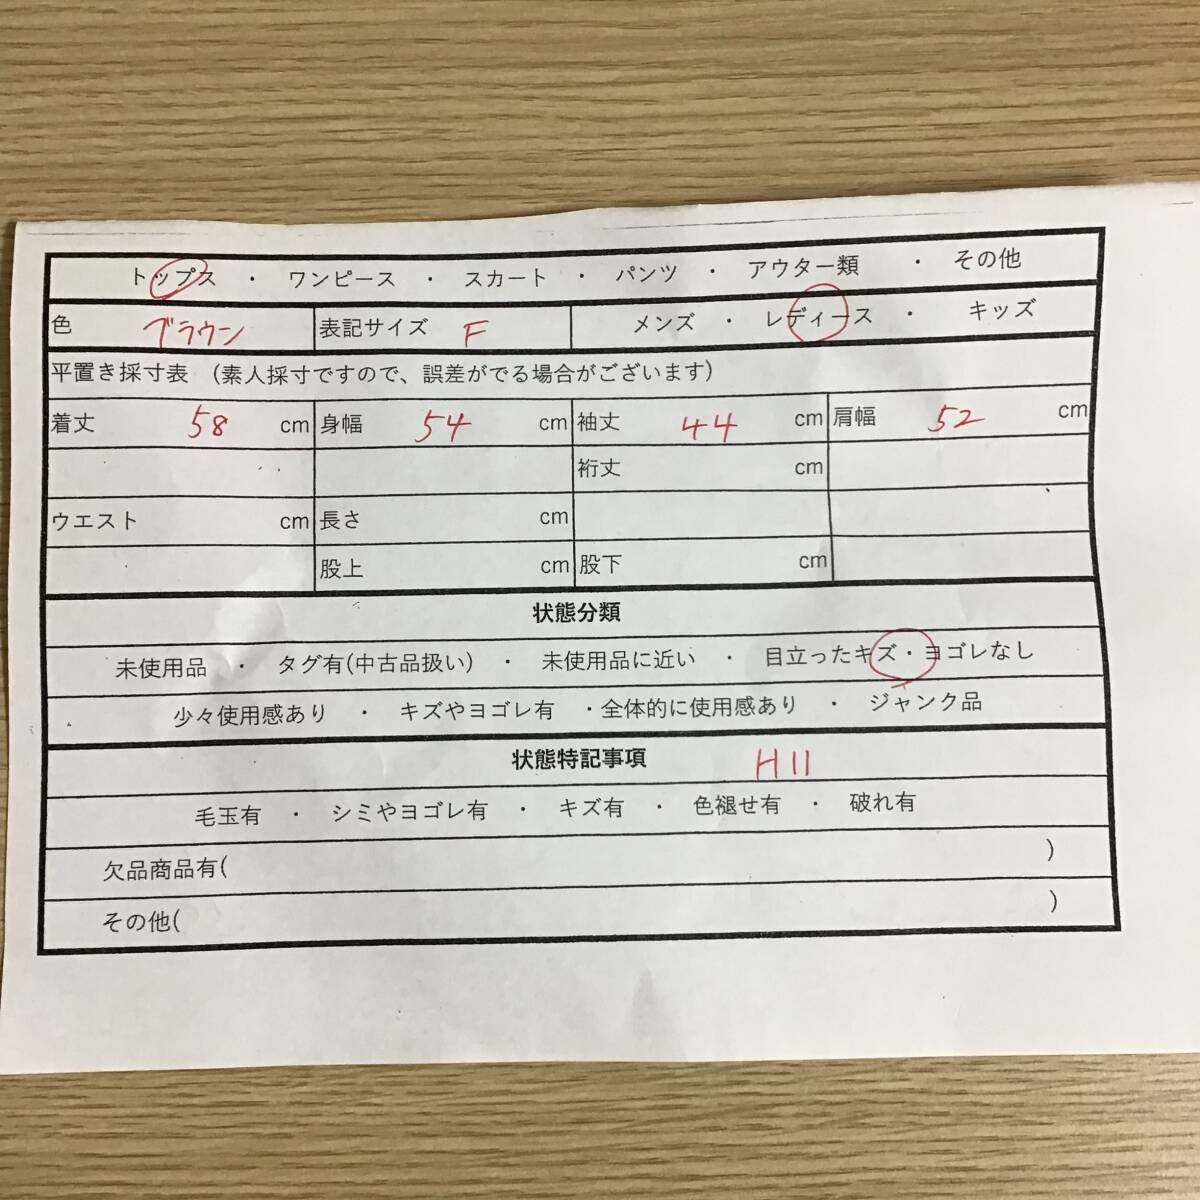 トップス ・ ワンピース ・ スカート ・ パンツ ・ アウター類 ・ その他
色 ブラウン 表記サイズ F メンズ ・ レディース ・ キッズ
平置き採寸表 (素人採寸ですので、誤差がでる場合がございます)
着丈 58 cm 身幅 54 cm 袖丈 44 cm 肩幅 52 cm
裄丈 cm
ウエスト cm 長さ cm
股上 cm 股下 cm
状態分類
未使用品 ・ タグ有(中古品扱い) ・ 未使用品に近い ・ 目立ったキズ・ヨゴレなし
少々使用感あり ・ キズやヨゴレ有 ・全体的に使用感あり ・ ジャンク品
状態特記事項 H11
毛玉有 ・ シミやヨゴレ有 ・ キズ有 ・ 色褪せ有 ・ 破れ有
欠品商品有( )
その他( )